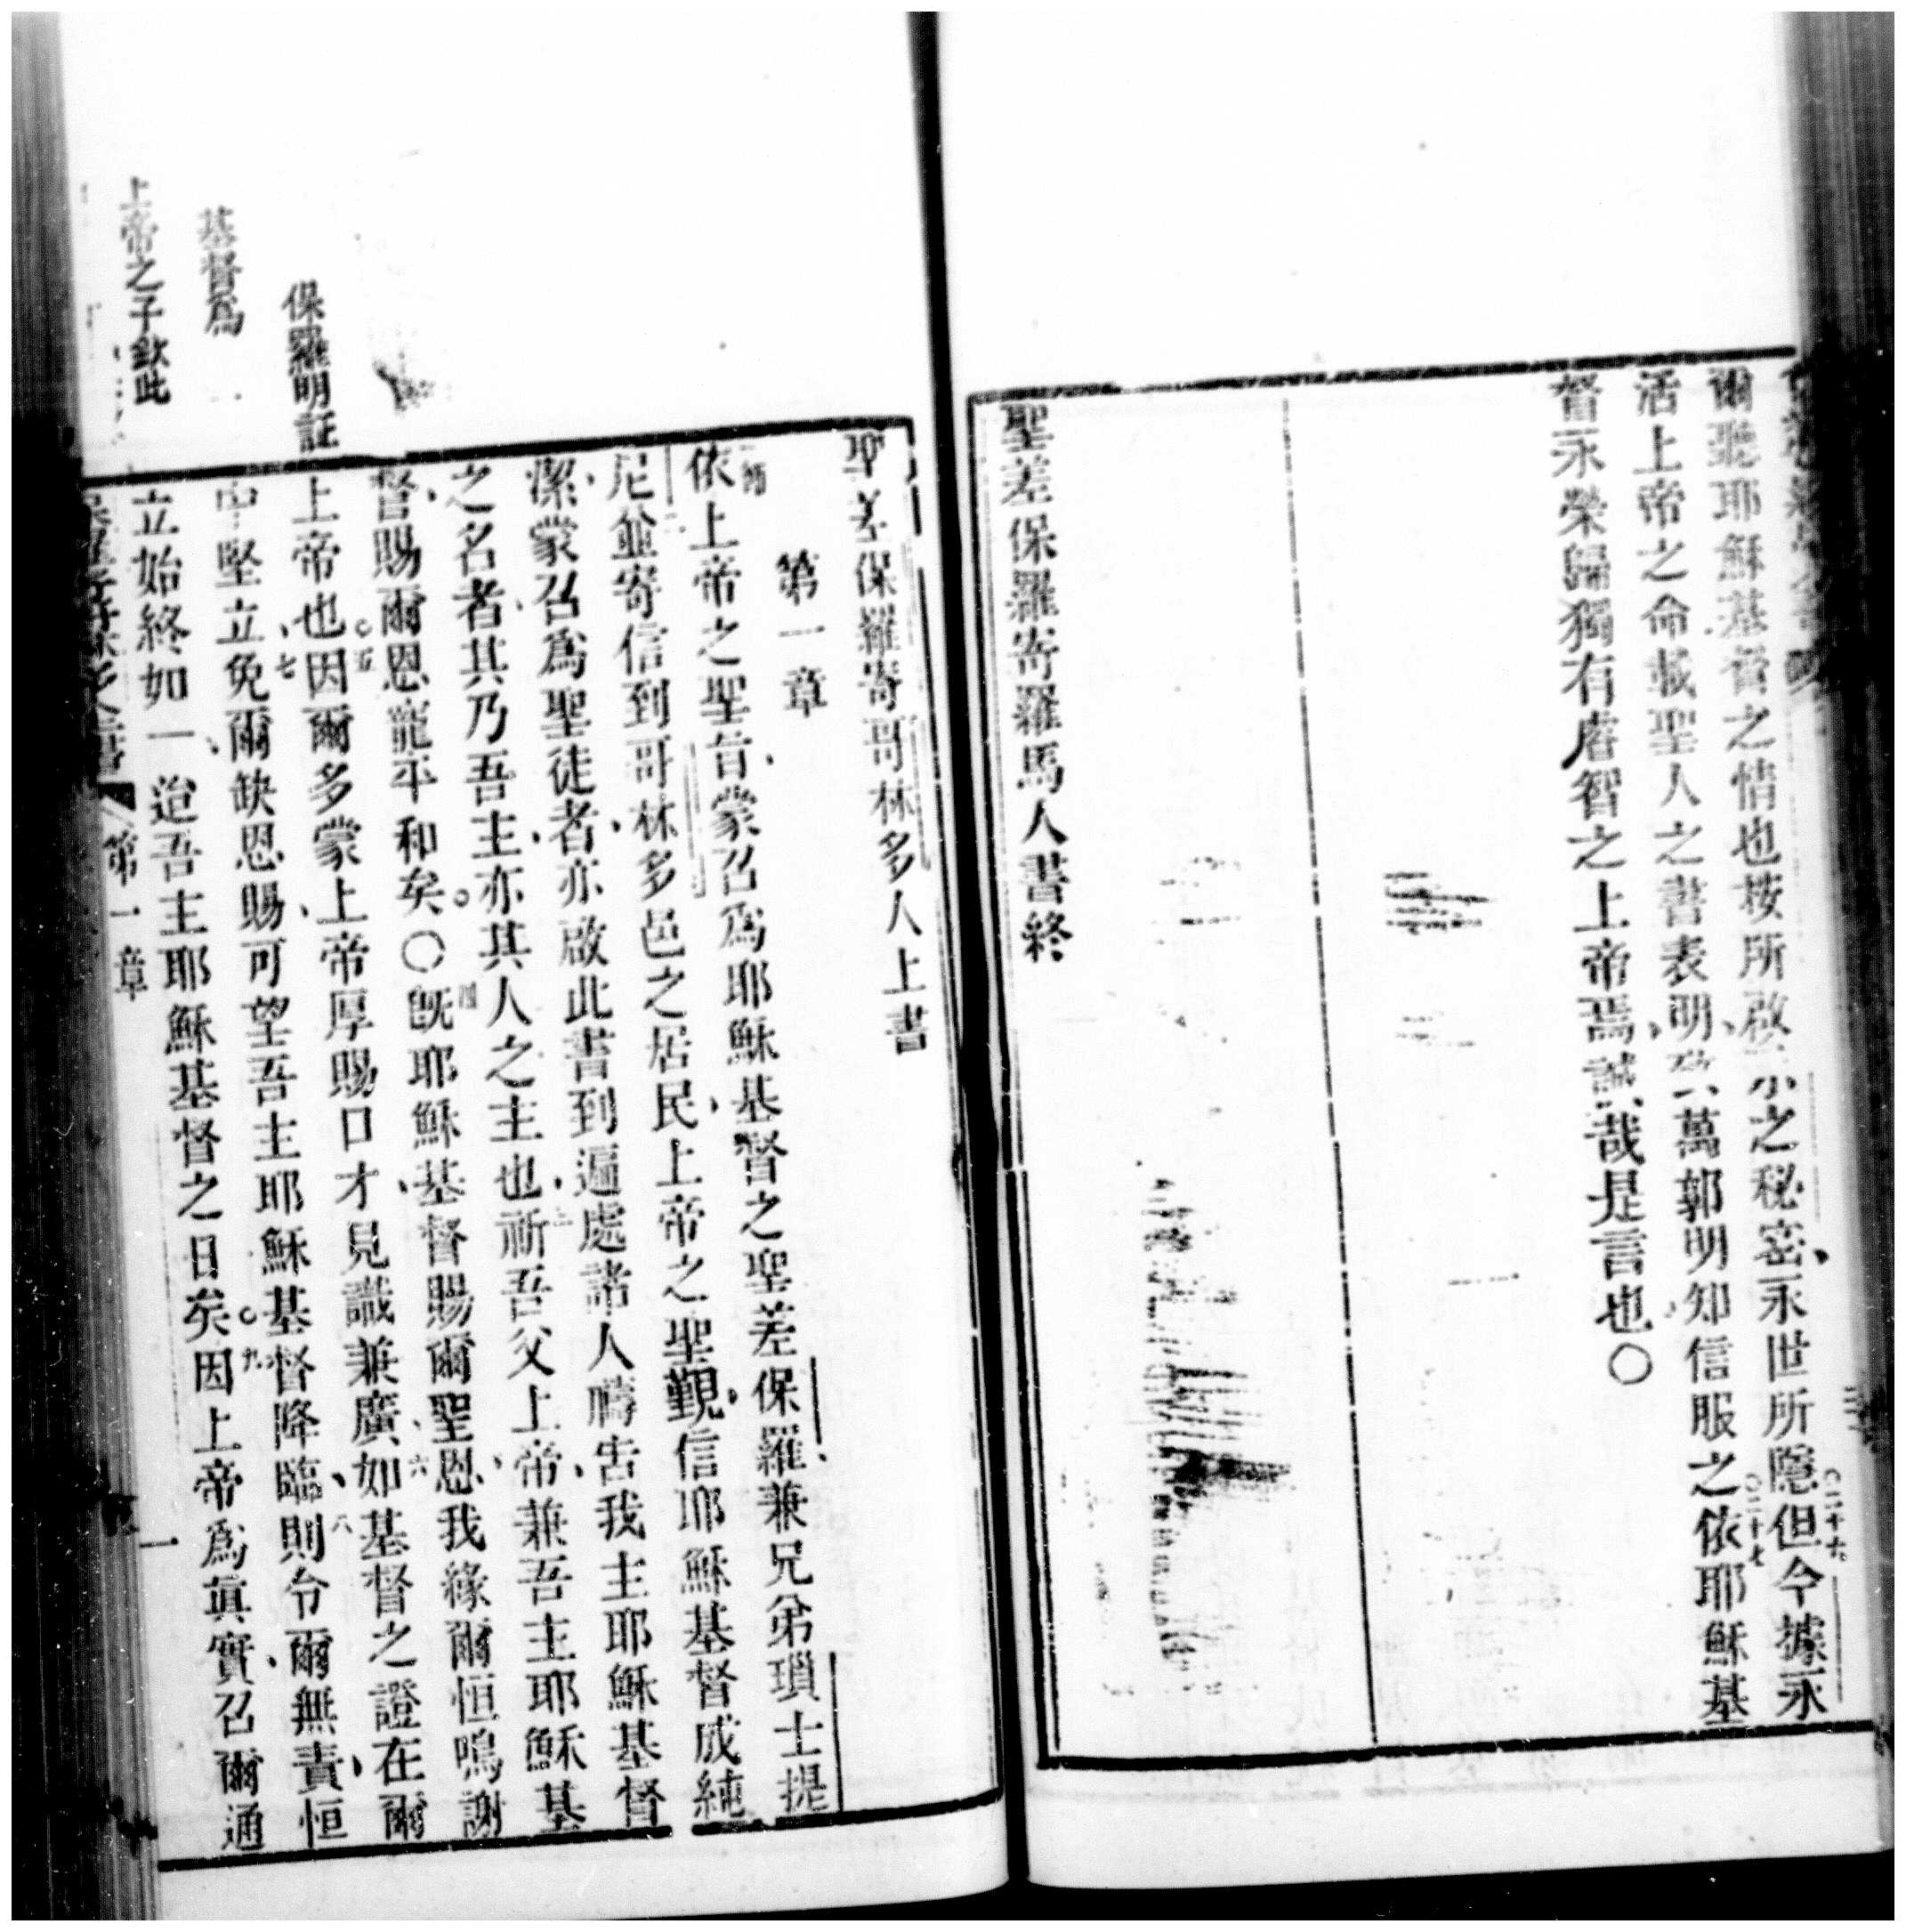 爾聽耶穌基督之情也按所啟示之秘密永世所隱但今據永
活上帝之命載聖人之書表明致萬郭明知信服之依耶穌基
督永榮歸獨有睿智之上帝焉誠哉是言也〇
聖差保羅寄羅馬人書終
〇二十六
〇二十七
聖差保羅寄哥林多人上書
第一章
依上帝之聖旨蒙召爲耶穌基督之聖差保羅兼兄弟瑣士提
尼並寄信到哥林多邑之居民上帝之聖覲信耶穌基督成純
潔蒙召爲聖徒者亦啟此書到遍處諸人禱告我主耶穌基督
之名者其乃吾主亦其人之主也祈吾父上帝兼吾主耶穌基
督賜爾恩寵平和矣〇四既耶穌基督賜爾聖恩我緣爾恒鳴謝
上帝也五因爾多蒙上帝厚賜口才見識兼廣六如基督之證在爾
中堅立七免爾缺恩賜可望吾主耶穌基督降臨八則令爾無責恒
立始終如一迨吾主耶穌基督之日矣九因上帝爲眞實召爾通
第一章
一
保羅明証
基督爲
上帝之子欽此